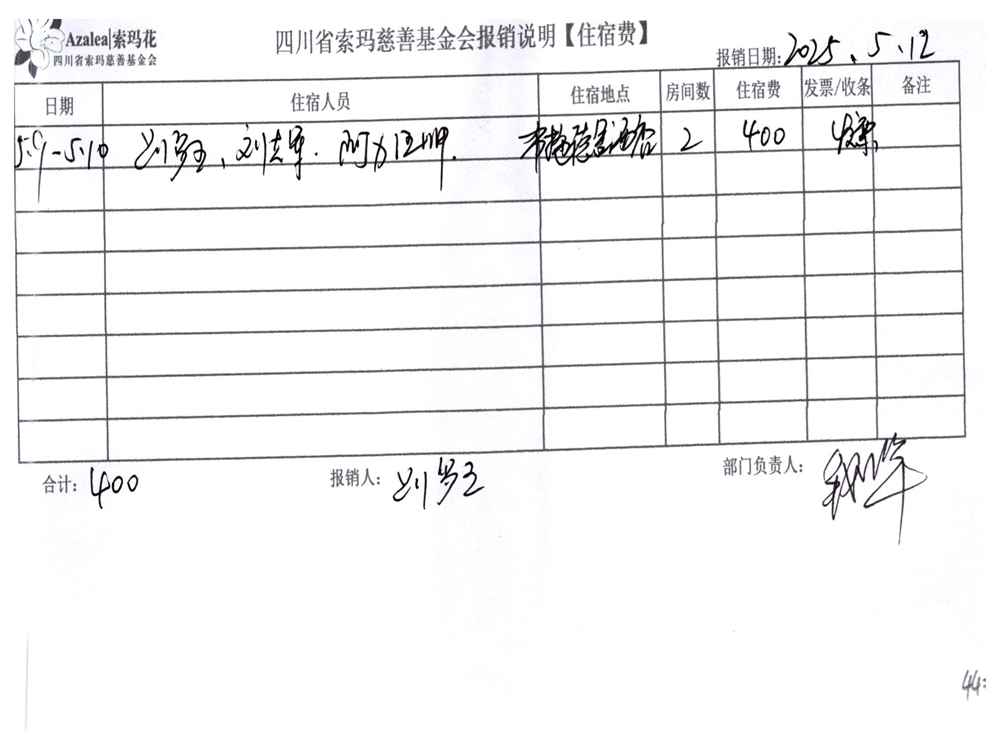 Azalea|索玛花
四川省索玛慈善基金会
四川省索玛慈善基金会报销说明【住宿费】
报销日期: 2025.5.12
日期 住宿人员 住宿地点 房间数 住宿费 发票/收条 备注
5.9-5.10 刘 、刘志军. 阿力 2 400
合计: 400
报销人: 刘
部门负责人:
44: